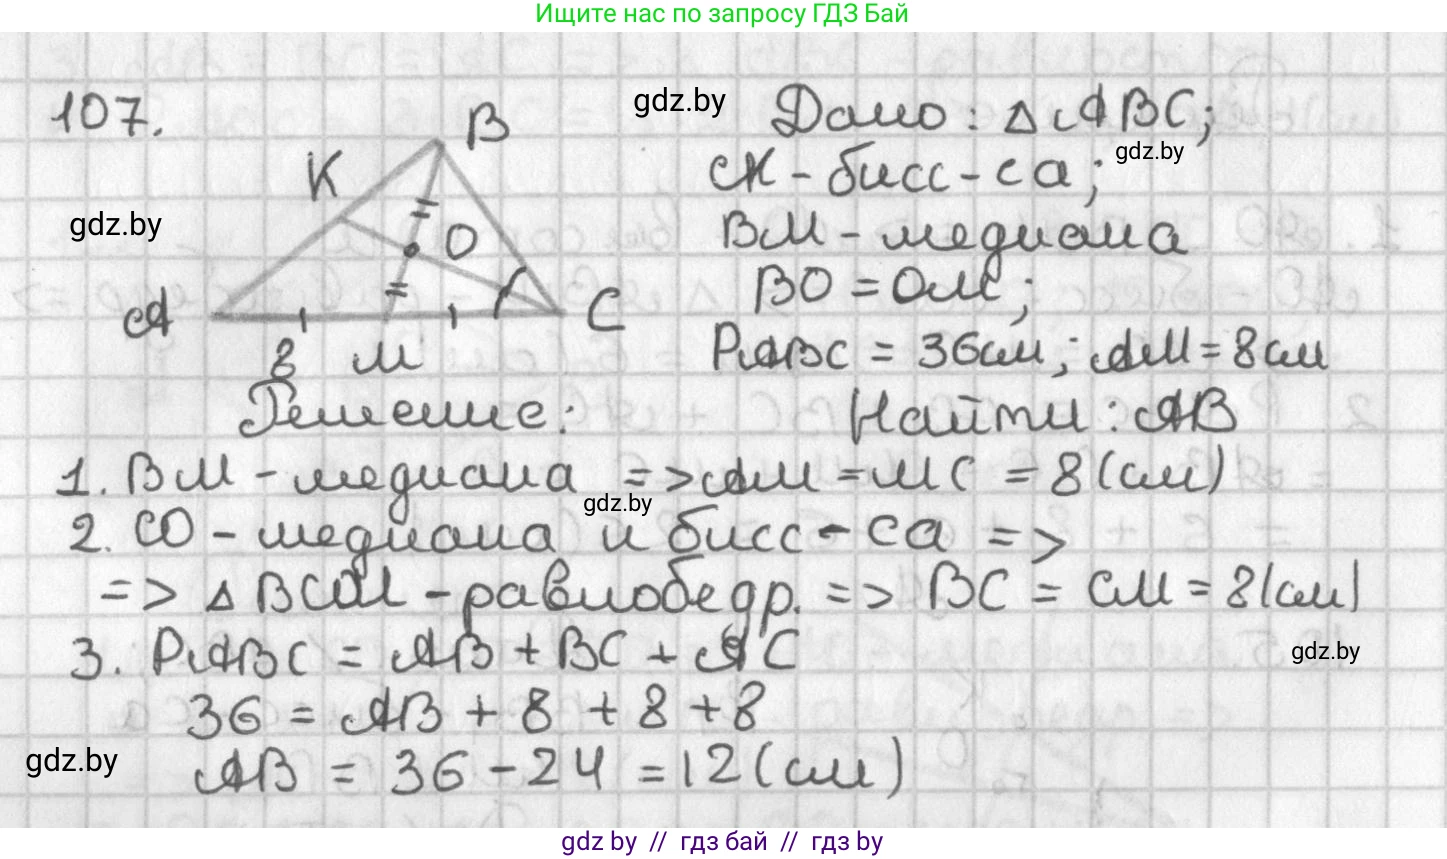 Ищите нас по запросу ГДЗ Бай
107.
B
K
O
A
C
8 M
gdz.by
gdz.by
Дано: △ABC;
gdz.by
CK - бисс-са;
BM - медиана
BO = OM;
PABC = 36см; AM = 8см
Решение:
Найти: AB
1. BM - медиана => AM = MC = 8(см)
gdz.by
2. CO - медиана и бисс-са =>
=> △BCM - равнобедр. => BC = CM = 8(см)
3. PABC = AB + BC + AC
gdz.by
36 = AB + 8 + 8 + 8
gdz.by
AB = 36 - 24 = 12(см)
gdz by // гдз бай // гдз by